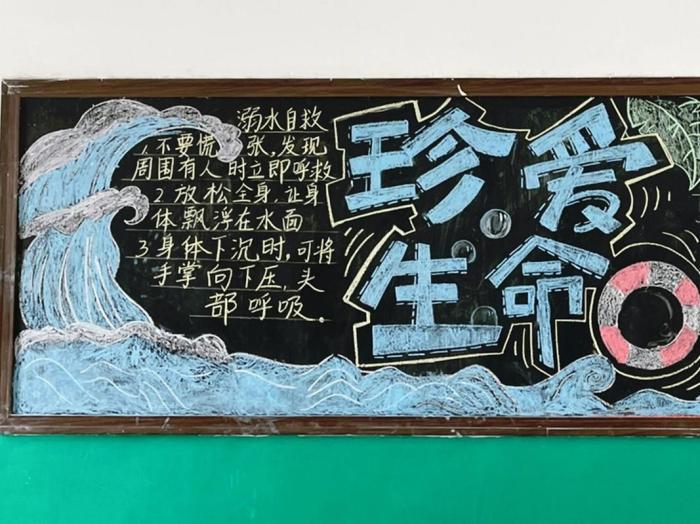 溺水自救
1.不要慌张,发现
周围有人时立即呼救
2.放松全身,让身
体飘浮在水面
3身体下沉时,可将
手掌向下压,头
部呼吸。
珍爱
生命